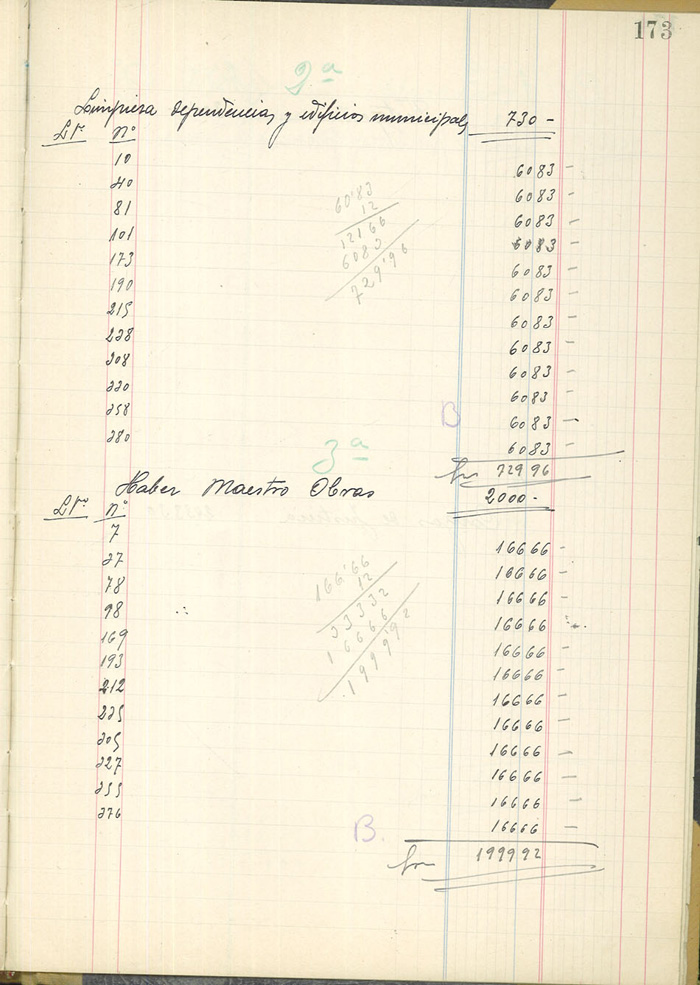 173
2ª
Limpieza dependencias y edificios municipales 730-
Lbº nº
10 6083 -
40 6083 -
81 6083 -
101 6083 -
173 6083 -
190 6083 -
215 6083 -
228 6083 -
308 6083 -
330 6083 -
358 6083 -
380 6083 -
72996
60'83
12
12166
6083
729'96
B
3ª
Haber Maestro Obras 2000-
Lbº nº
7 16666 -
37 16666 -
78 16666 -
98 16666 -
169 16666 -
193 16666 -
212 16666 -
225 16666 -
305 16666 -
327 16666 -
355 16666 -
376 16666 -
199992
166'66
12
33332
16666
1999'92
B.